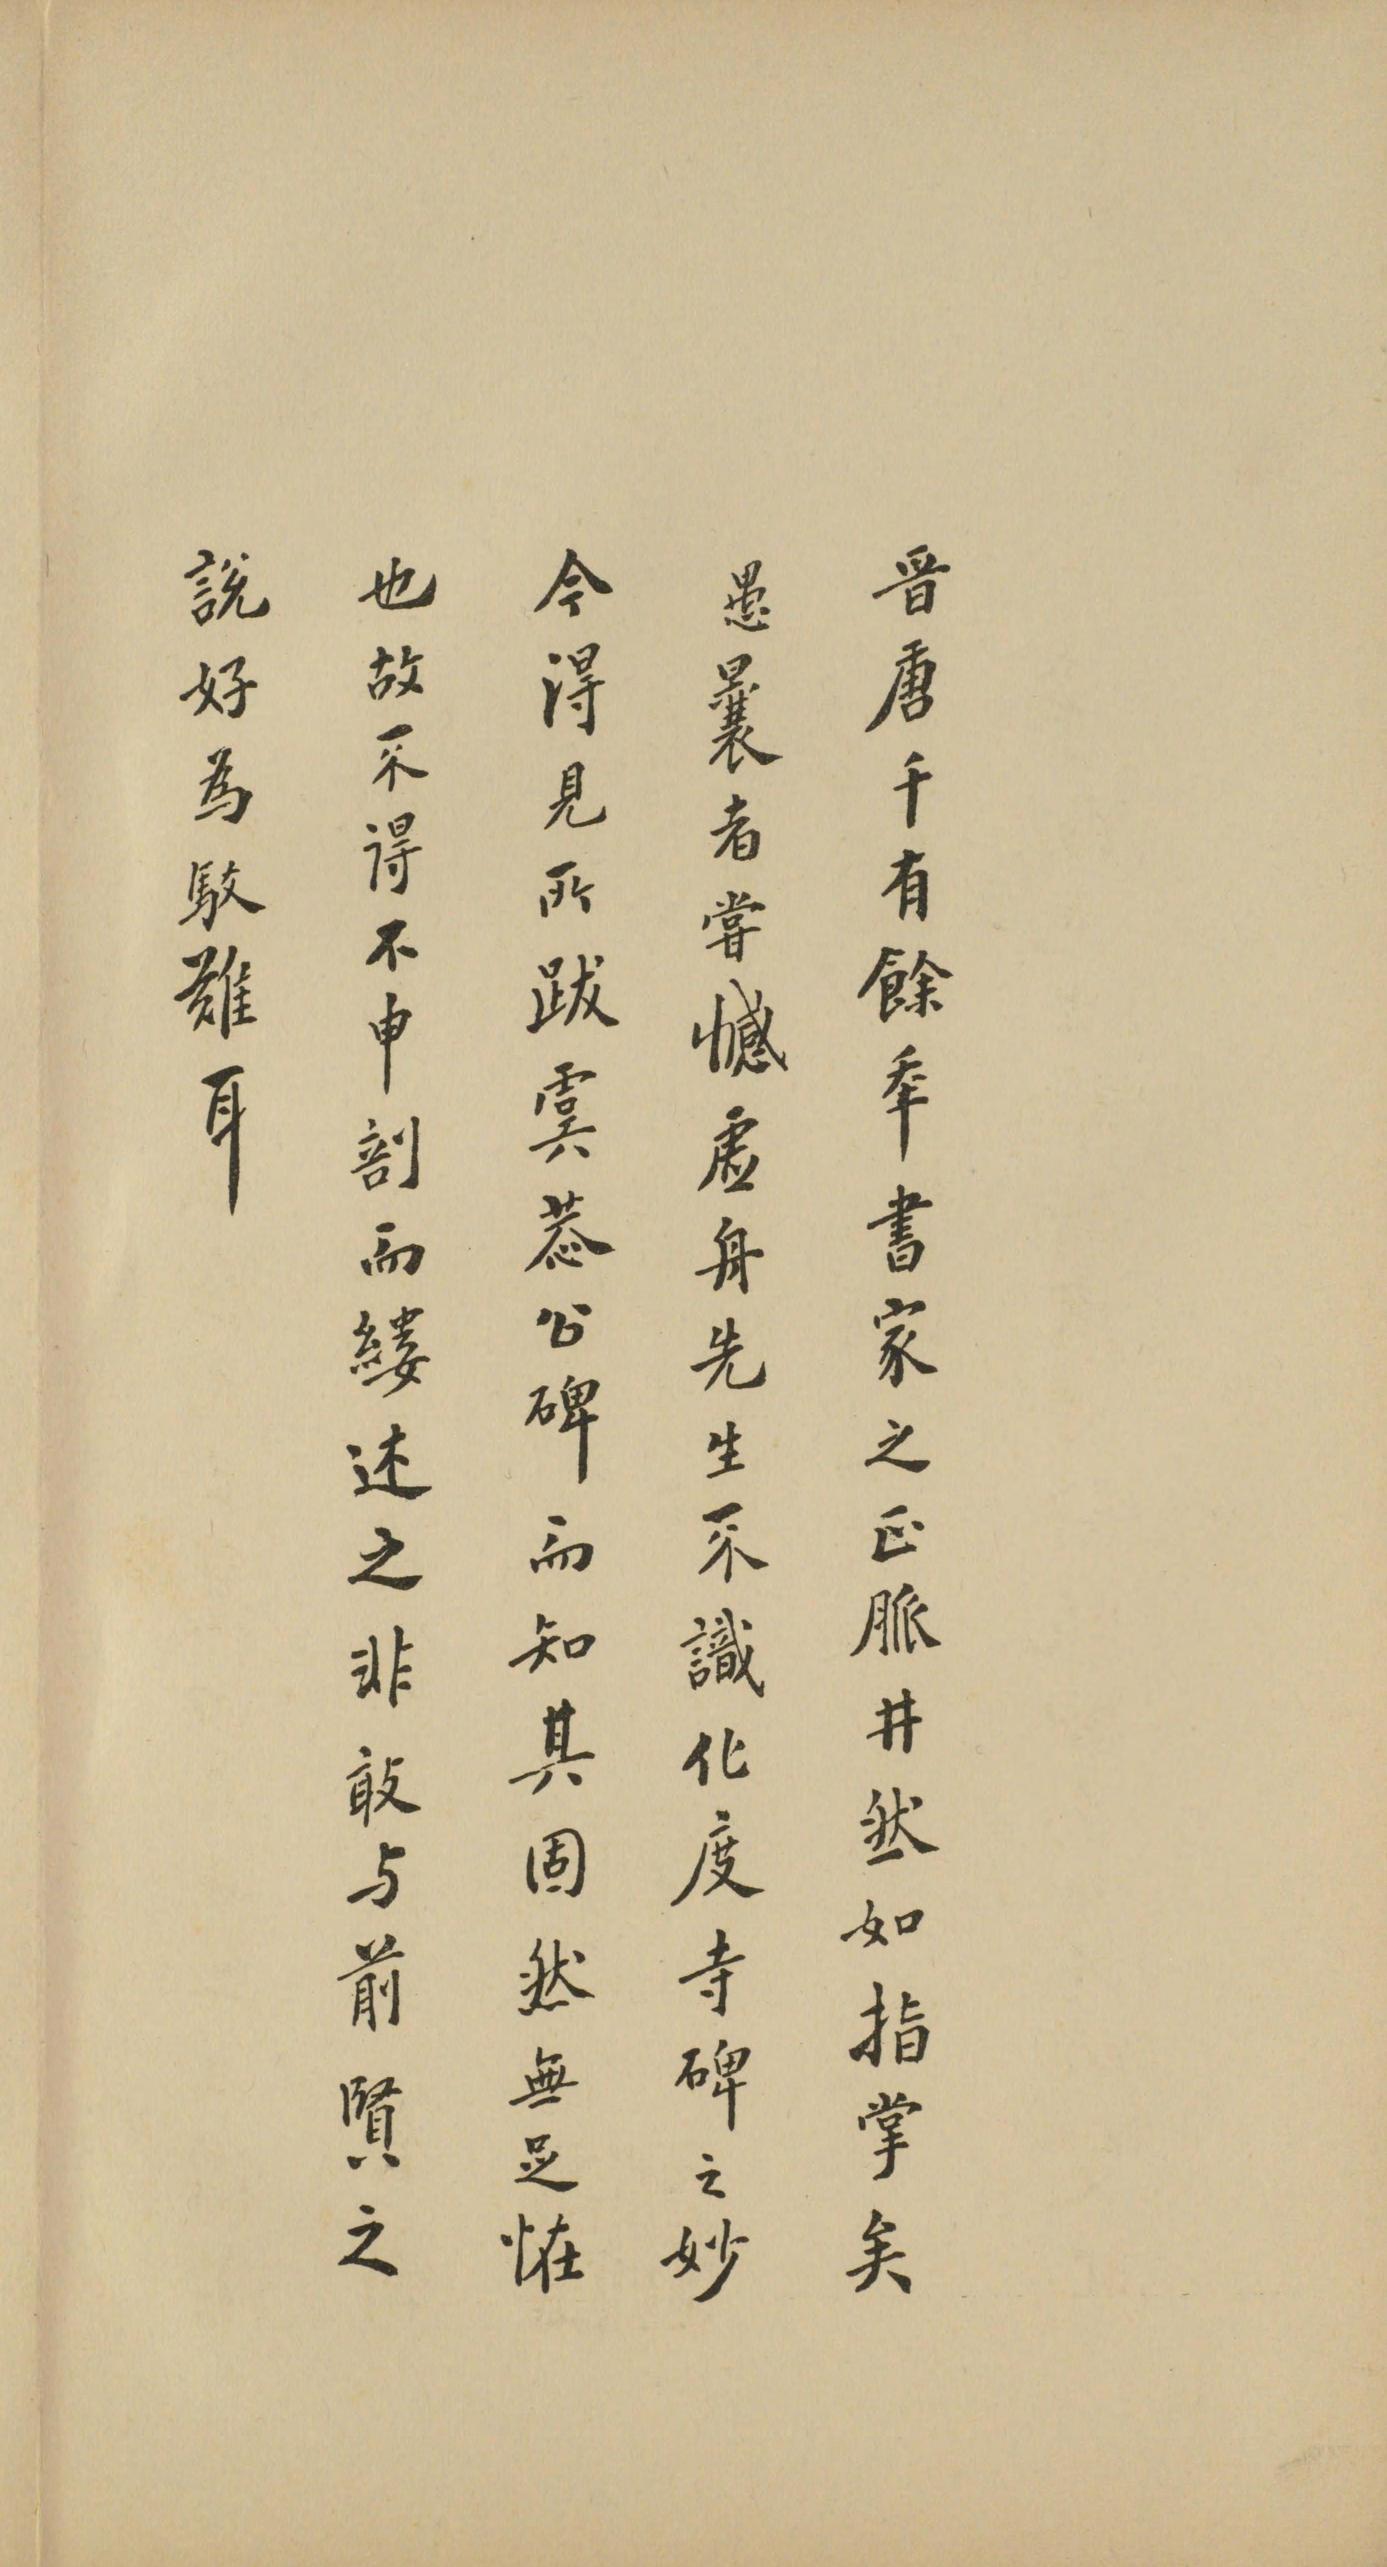 晋唐千有餘年書家之正脈井然如指掌矣
愚曩者嘗憾虛舟先生不識化度寺碑之妙
今得見所跋虞恭公碑而知其固然無足怪
也故不得不申剖而縷述之非敢与前賢之
說好為駁難耳